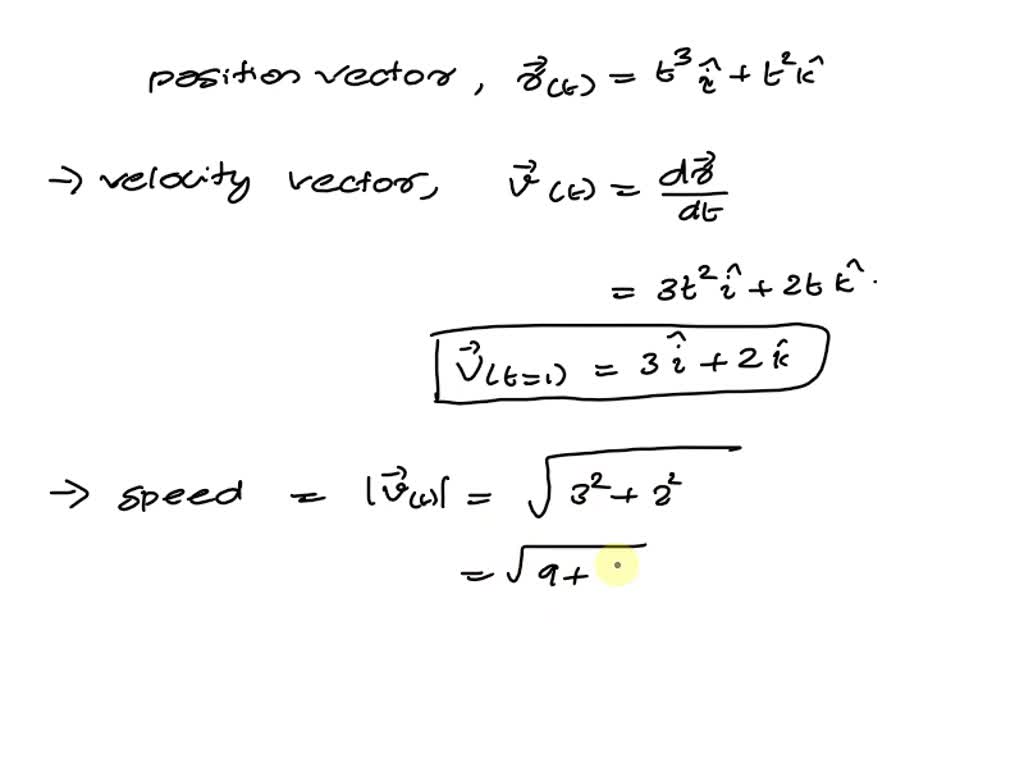 position vector, r⃗(t) = t³ î + t² k̂
→ velocity vector, v⃗(t) = dr⃗/dt
= 3t² î + 2t k̂.
V⃗(t=1) = 3 î + 2 k̂
→ speed = |v⃗(t)| = √(3² + 2²)
= √(9+